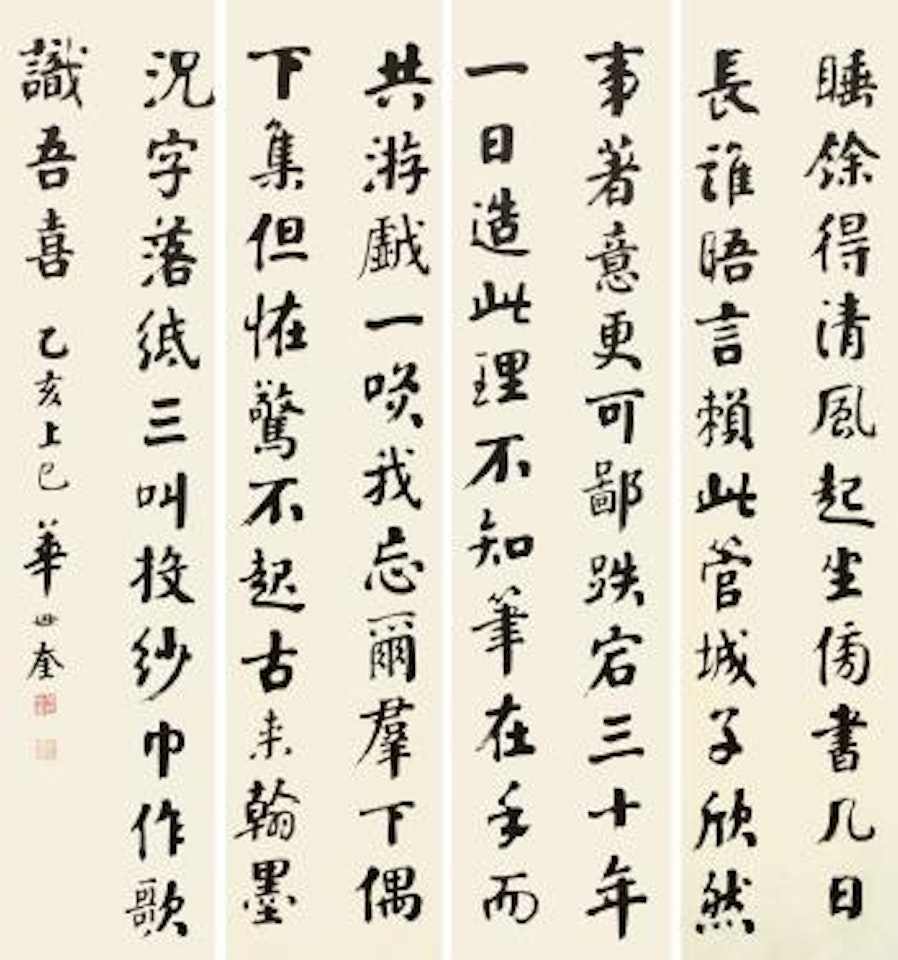 睡餘得清風起坐傍書几日
長誰晤言賴此管城子欣然
事著意更可鄙跌宕三十年
一日造此理不知筆在手而
共游戲一喚我忘爾羣下偶
下集但恠驚不起古来翰墨
況字落紙三叫投紗巾作歌
識吾喜 乙亥上巳 華世奎